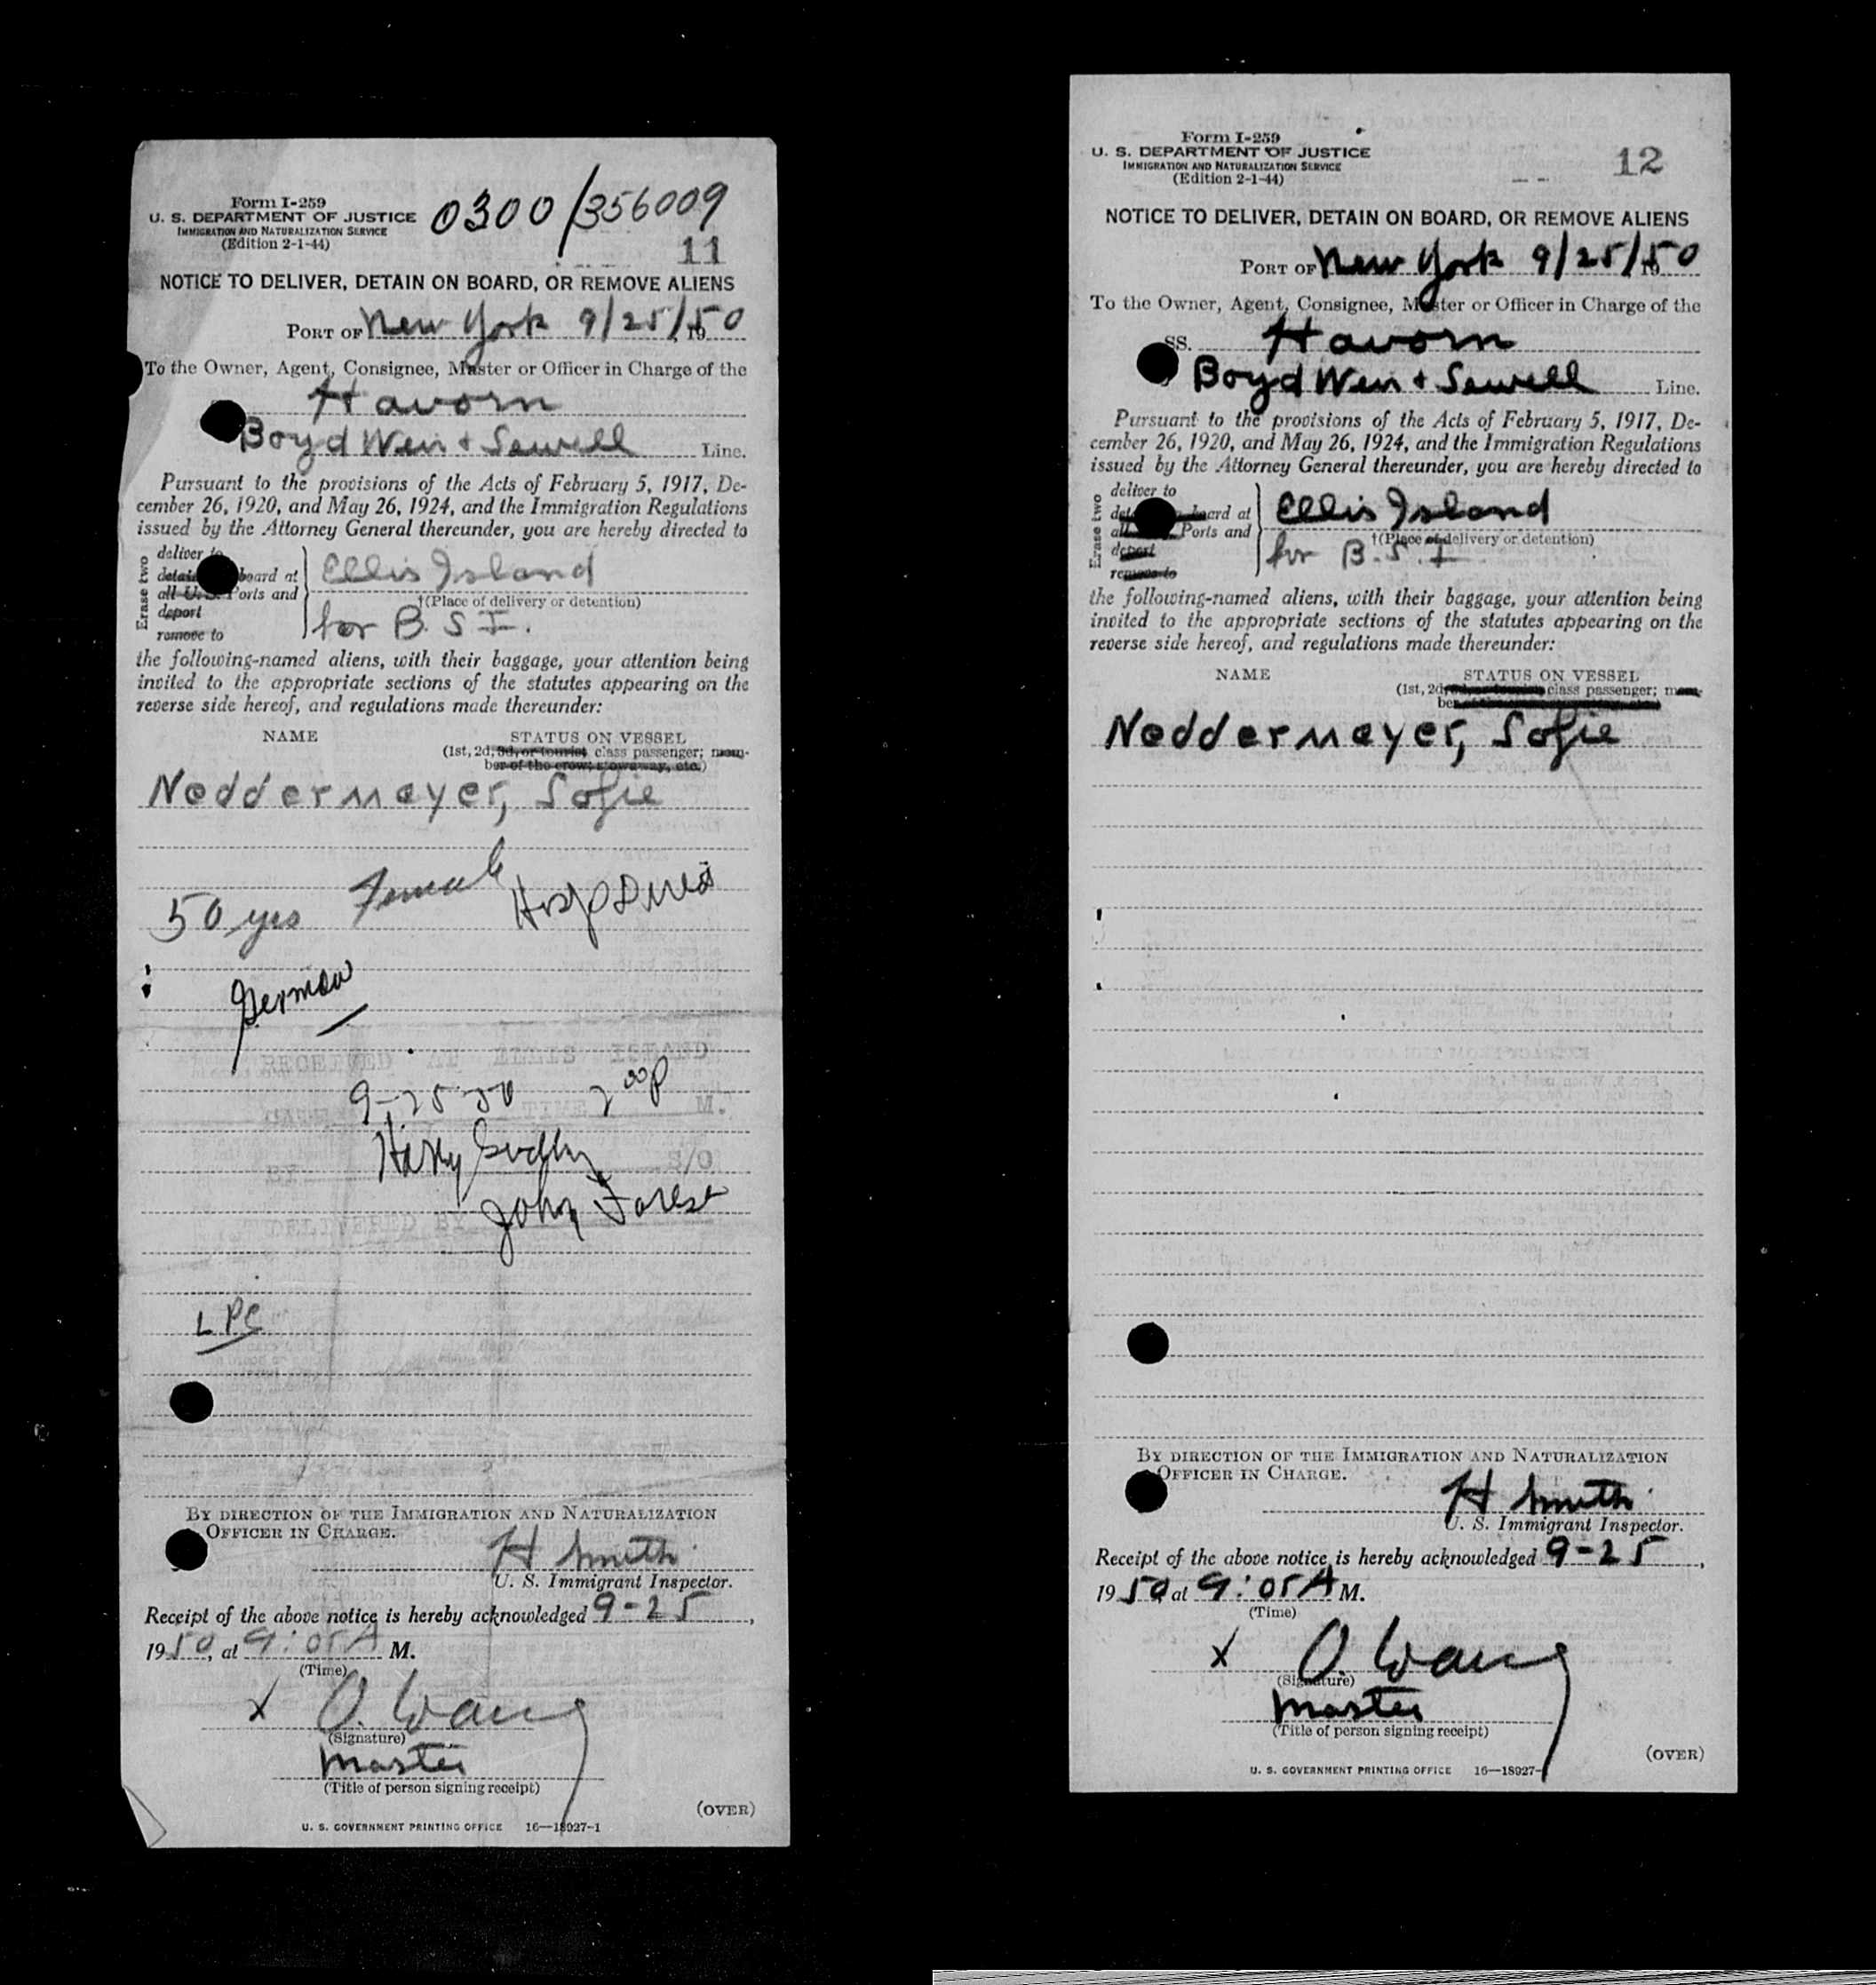 Form I-259
U. S. DEPARTMENT OF JUSTICE
IMMIGRATION AND NATURALIZATION SERVICE
(Edition 2-1-44)
0300/356009
11
NOTICE TO DELIVER, DETAIN ON BOARD, OR REMOVE ALIENS
PORT OF New York 9/25/, 1950
To the Owner, Agent, Consignee, Master or Officer in Charge of the
Havorn
Boyd Weir + Sewell Line.
Pursuant to the provisions of the Acts of February 5, 1917, De-
cember 26, 1920, and May 26, 1924, and the Immigration Regulations
issued by the Attorney General thereunder, you are hereby directed to
Erase two
deliver to
detain board at
all U.S. Ports and
deport
remove to
Ellis Island
†(Place of delivery or detention)
for B. S. I.
the following-named aliens, with their baggage, your attention being
invited to the appropriate sections of the statutes appearing on the
reverse side hereof, and regulations made thereunder:
NAME STATUS ON VESSEL
(1st, 2d, 3d, or tourist class passenger; mem-
ber of the crew; stowaway, etc.)
Neddermeyer, Sofie
50 yrs Female
German
RECEIVED AT ELLIS ISLAND
DATE 9-25-50 TIME 2 00 P M.
BY Harry S/O
DELIVERED BY John Forest
LPC
BY DIRECTION OF THE IMMIGRATION AND NATURALIZATION
OFFICER IN CHARGE.
H Smith
U. S. Immigrant Inspector.
Receipt of the above notice is hereby acknowledged 9-25,
1950, at 9:05 A M.
(Time)
X O. Wang
(Signature)
Master
(Title of person signing receipt)
(OVER)
U. S. GOVERNMENT PRINTING OFFICE 16—18927-1
Form I-259
U. S. DEPARTMENT OF JUSTICE
IMMIGRATION AND NATURALIZATION SERVICE
(Edition 2-1-44)
12
NOTICE TO DELIVER, DETAIN ON BOARD, OR REMOVE ALIENS
PORT OF New York 9/25/, 1950
To the Owner, Agent, Consignee, Master or Officer in Charge of the
SS. Havorn
Boyd Weir + Sewell Line.
Pursuant to the provisions of the Acts of February 5, 1917, De-
cember 26, 1920, and May 26, 1924, and the Immigration Regulations
issued by the Attorney General thereunder, you are hereby directed to
Erase two
deliver to
board at
all Ports and
deport
remove to
Ellis Island
†(Place of delivery or detention)
for B. S. I.
the following-named aliens, with their baggage, your attention being
invited to the appropriate sections of the statutes appearing on the
reverse side hereof, and regulations made thereunder:
NAME STATUS ON VESSEL
(1st, 2d, class passenger; mem-
ber
Neddermeyer, Sofie
BY DIRECTION OF THE IMMIGRATION AND NATURALIZATION
OFFICER IN CHARGE.
H Smith
U. S. Immigrant Inspector.
Receipt of the above notice is hereby acknowledged 9-25,
1950 at 9:05 A M.
(Time)
X O. Wang
(Signature)
Master
(Title of person signing receipt)
(OVER)
U. S. GOVERNMENT PRINTING OFFICE 16—18927-1